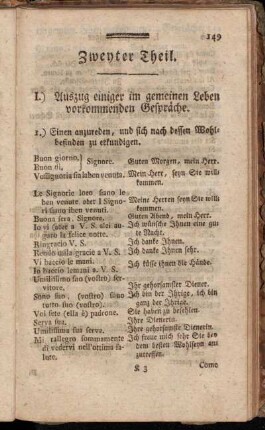 149
Zweyter Theil.
I.) Auszug einiger im gemeinen Leben
vorkommenden Gespräche.
1.) Einen anzureden, und sich nach dessen Wohl-
befinden zu erkundigen.
Buon giorno,) Signore. Guten Morgen, mein Herr.
Buon dì,
Vossignoria sia ben venuta. Mein Herr, seyn Sie will-
kommen.
Le Signorie loro sieno le Meine Herren seyn Sie will-
ben venute. ober I Signo- kommen.
ri siano iben venuti.
Buona sera, Signore. Guten Abend, mein Herr.
Io vi (oder a V. S.) auguro Ich wünsche Ihnen eine gu-
felice notte. te Nacht.
Ringrazio V. S. Ich danke Ihnen.
Rendo mille grazie a V. S. Ich danke Ihnen sehr.
Vi baccio le mani. Ich küsse ihnen die Hände.
Io baccio le mani a V. S.
Umilissimo suo (vostro) ser- Ihr gehorsamster Diener.
vitore.
Sono suo, (vostro) Ich bin der Ihrige, ich bin
ganz der Ihrige.
Voi sete (ella è) padrone. Sie haben zu befehlen.
Serva sua. Ihre Dienerin.
Umilissima sua serva. Ihre gehorsamste Dienerin.
Mi rallegro sommamente Ich freue mich sehr Sie bey
di vedervi nell'ottima sa- dem besten Wohlseyn an-
lute. zutreffen.
K 3 Come